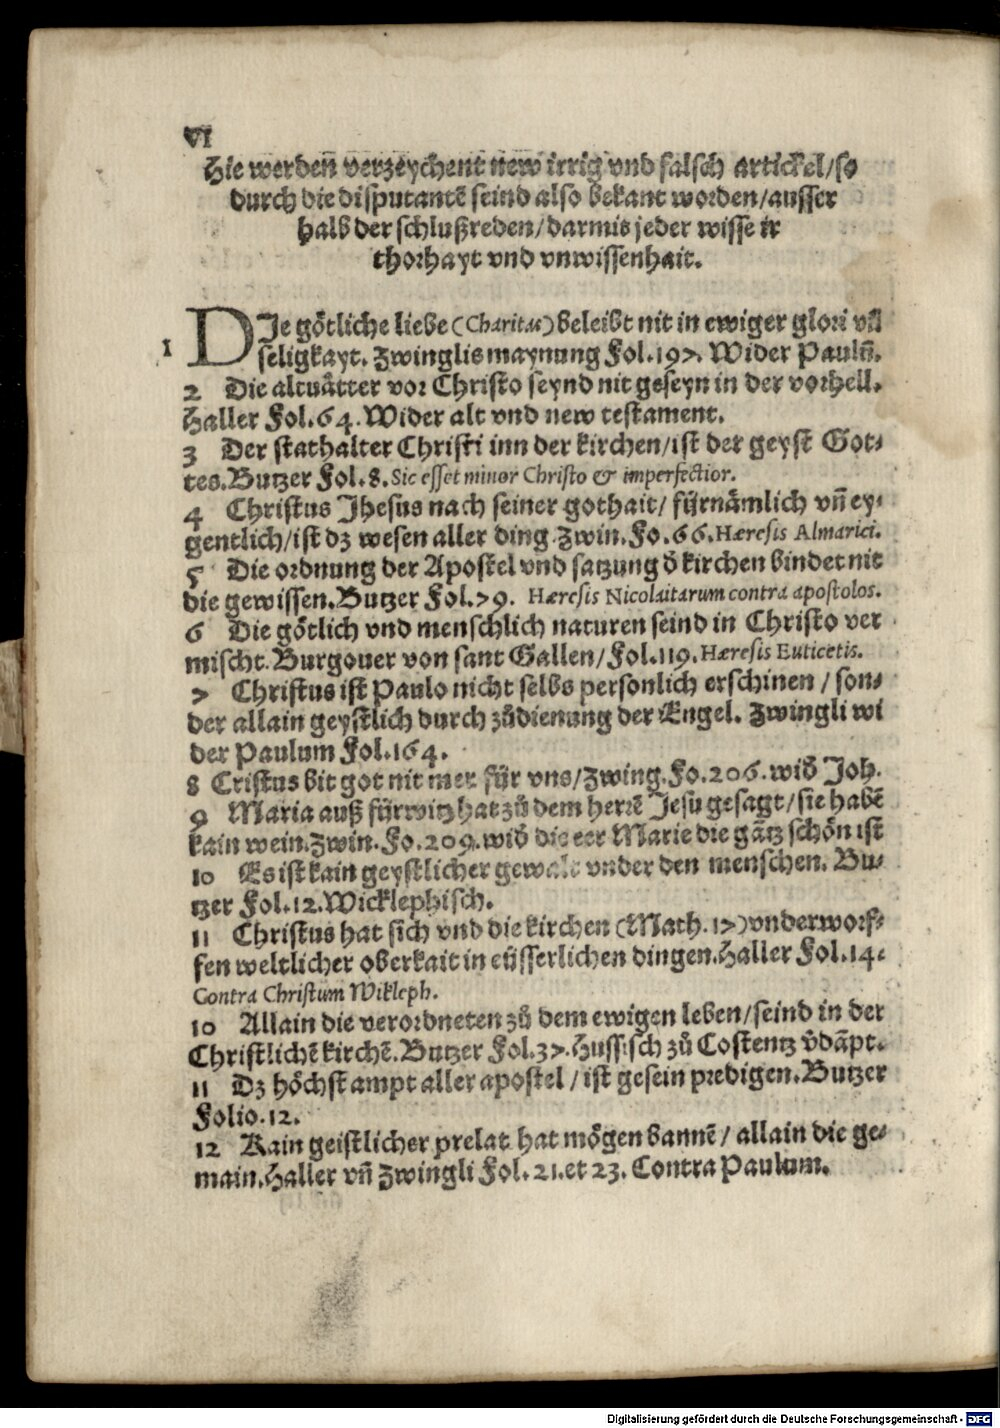 VI
Hie werden verzeychent new irrig vnd falsch artickel/so
durch die disputantē seind also bekant worden/ausser
halb der schlußreden/darmis jeder wisse ir
thorhayt vnd vnwissenhait.
1 DJe götliche liebe (Charitas) beleibt nit in ewiger glori vñ
seligkayt. Zwinglis maynung Fol.197. Wider Paulū.
2 Die altuåtter vor Christo seynd nit geseyn in der vorhell.
Haller Fol.64. Wider alt vnd new testament.
3 Der stathalter Christi inn der kirchen/ist der geyst Got⸗
tes. Butzer Fol.8. Sic esset minor Christo & imperfectior.
4 Christus Jhesus nach seiner gothait/ fürnåmlich vñ ey⸗
gentlich/ist dz wesen aller ding. Zwin. Fo.66. Hæresis Almarici.
5 Die ordnung der Apostel vnd satzung d̄ kirchen bindet nit
die gewissen. Butzer Fol.79. Hæresis Nicolaitarum contra apostolos.
6 Die götlich vnd menschlich naturen seind in Christo ver
mischt. Burgouer von sant Gallen/ Fol.119. Hæresis Euticetis.
7 Christus ist Paulo nicht selbs personlich erschinen / son⸗
der allain geystlich durch zůdienung der Engel. Zwingli wi
der Paulum Fol.164.
8 Cristus bit got nit mer für vns/Zwing. Fo.206. wid̄ Joh.
9 Maria auß fürwitz hat zů dem herrē Jesu gesagt/sie habē
kain wein. Zwin. Fo.209. wid̄ die eer Marie die gātz schön ist
10 Es ist kain geystlicher gewalt vnder den menschen. Bu⸗
tzer Fol.12. Wicklephisch.
11 Christus hat sich vnd die kirchen (Math.17) vnderworf⸗
fen weltlicher oberkait in eüsserlichen dingen. Haller Fol.14⸗
Contra Christum Wikleph.
10 Allain die verordneten zů dem ewigen leben/seind in der
Christlichē kirchē. Butzer Fol.37. Hussisch zů Costentz v̄dāpt.
11 Dz höchst ampt aller apostel / ist gesein predigen. Butzer
Folio.12.
12 Kain geistlicher prelat hat mögen bannē / allain die ge⸗
main. Haller vñ Zwingli Fol.21. et 23. Contra Paulum.
Digitalisierung gefördert durch die Deutsche Forschungsgemeinschaft - DFG